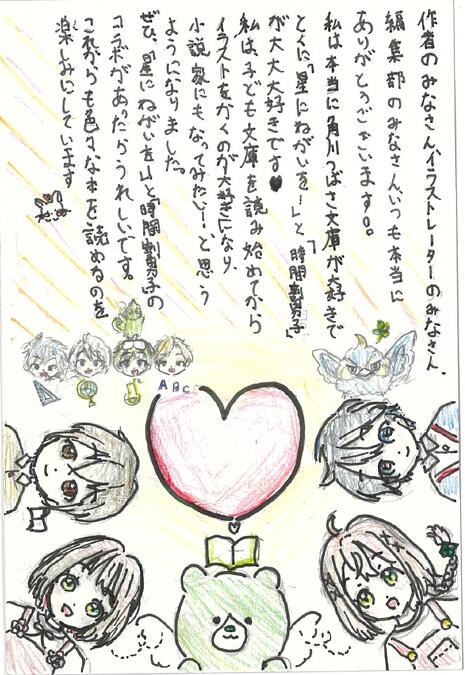 作者のみなさん、イラストレーターのみなさん、
編集部のみなさん、いつも本当に
ありがとうございます。
私は本当に角川つばさ文庫が大好きで
とくに、「星にねがいを!」と「時間割男子」
が大大大好きです♥
私は、子ども文庫を読み始めてから
イラストをかくのが大好きになり、
小説家にもなってみたい!と思う
ようになりました。
ぜひ、「星にねがいを!」と「時間割男子」の
コラボがあったらうれしいです。
これからも色々な本を読めるのを
楽しみにしています
ABC